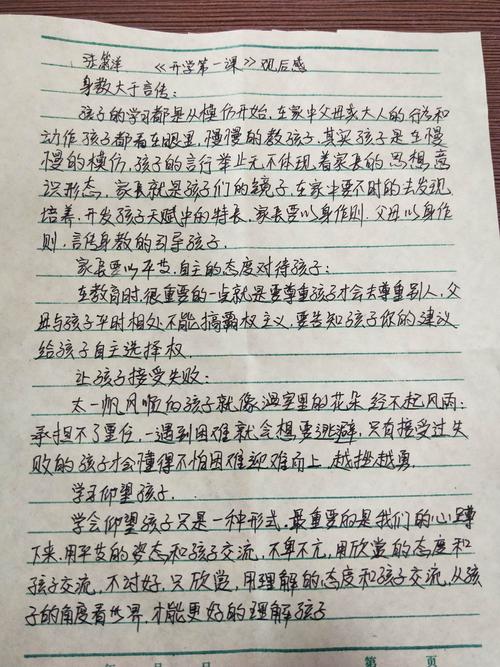 张  洋  《开学第一课》观后感
身教大于言传:
孩子的学习都是从模仿开始,在家中父母亲大人的行为和
动作,孩子都看在眼里,慢慢的教孩子,其实孩子是在慢
慢的模仿,孩子的言行举止无不体现着家长的思想,意
识形态,家长就是孩子们的镜子,在家中要不时的去发现
培养,开发孩子天赋中的特长,家长要以身作则,父母以身作
则,言传身教的引导孩子.
家长要以平等.自主的态度对待孩子:
在教育时,很重要的一点就是要尊重孩子才会去尊重别人,父
母与孩子平时相处不能搞霸权主义,要告知孩子你的建议
给孩子自主选择权.
让孩子接受失败:
太一帆风顺的孩子就像温室里的花朵 经不起风雨;
承担不了重任,一遇到困难就会想要逃避,只有接受过失
败的孩子才会懂得不怕困难迎难而上,越挫越勇.
学习仰望孩子.
学会仰望孩子只是一种形式,最重要的是我们的心蹲
下来,用平等的姿态和孩子交流,不卑不亢,用欣赏的态度和
孩子交流,不讨好,只欣赏,用理解的态度和孩子交流,从孩
子的角度看世界,才能更好的理解孩子
年 月 日 第 页